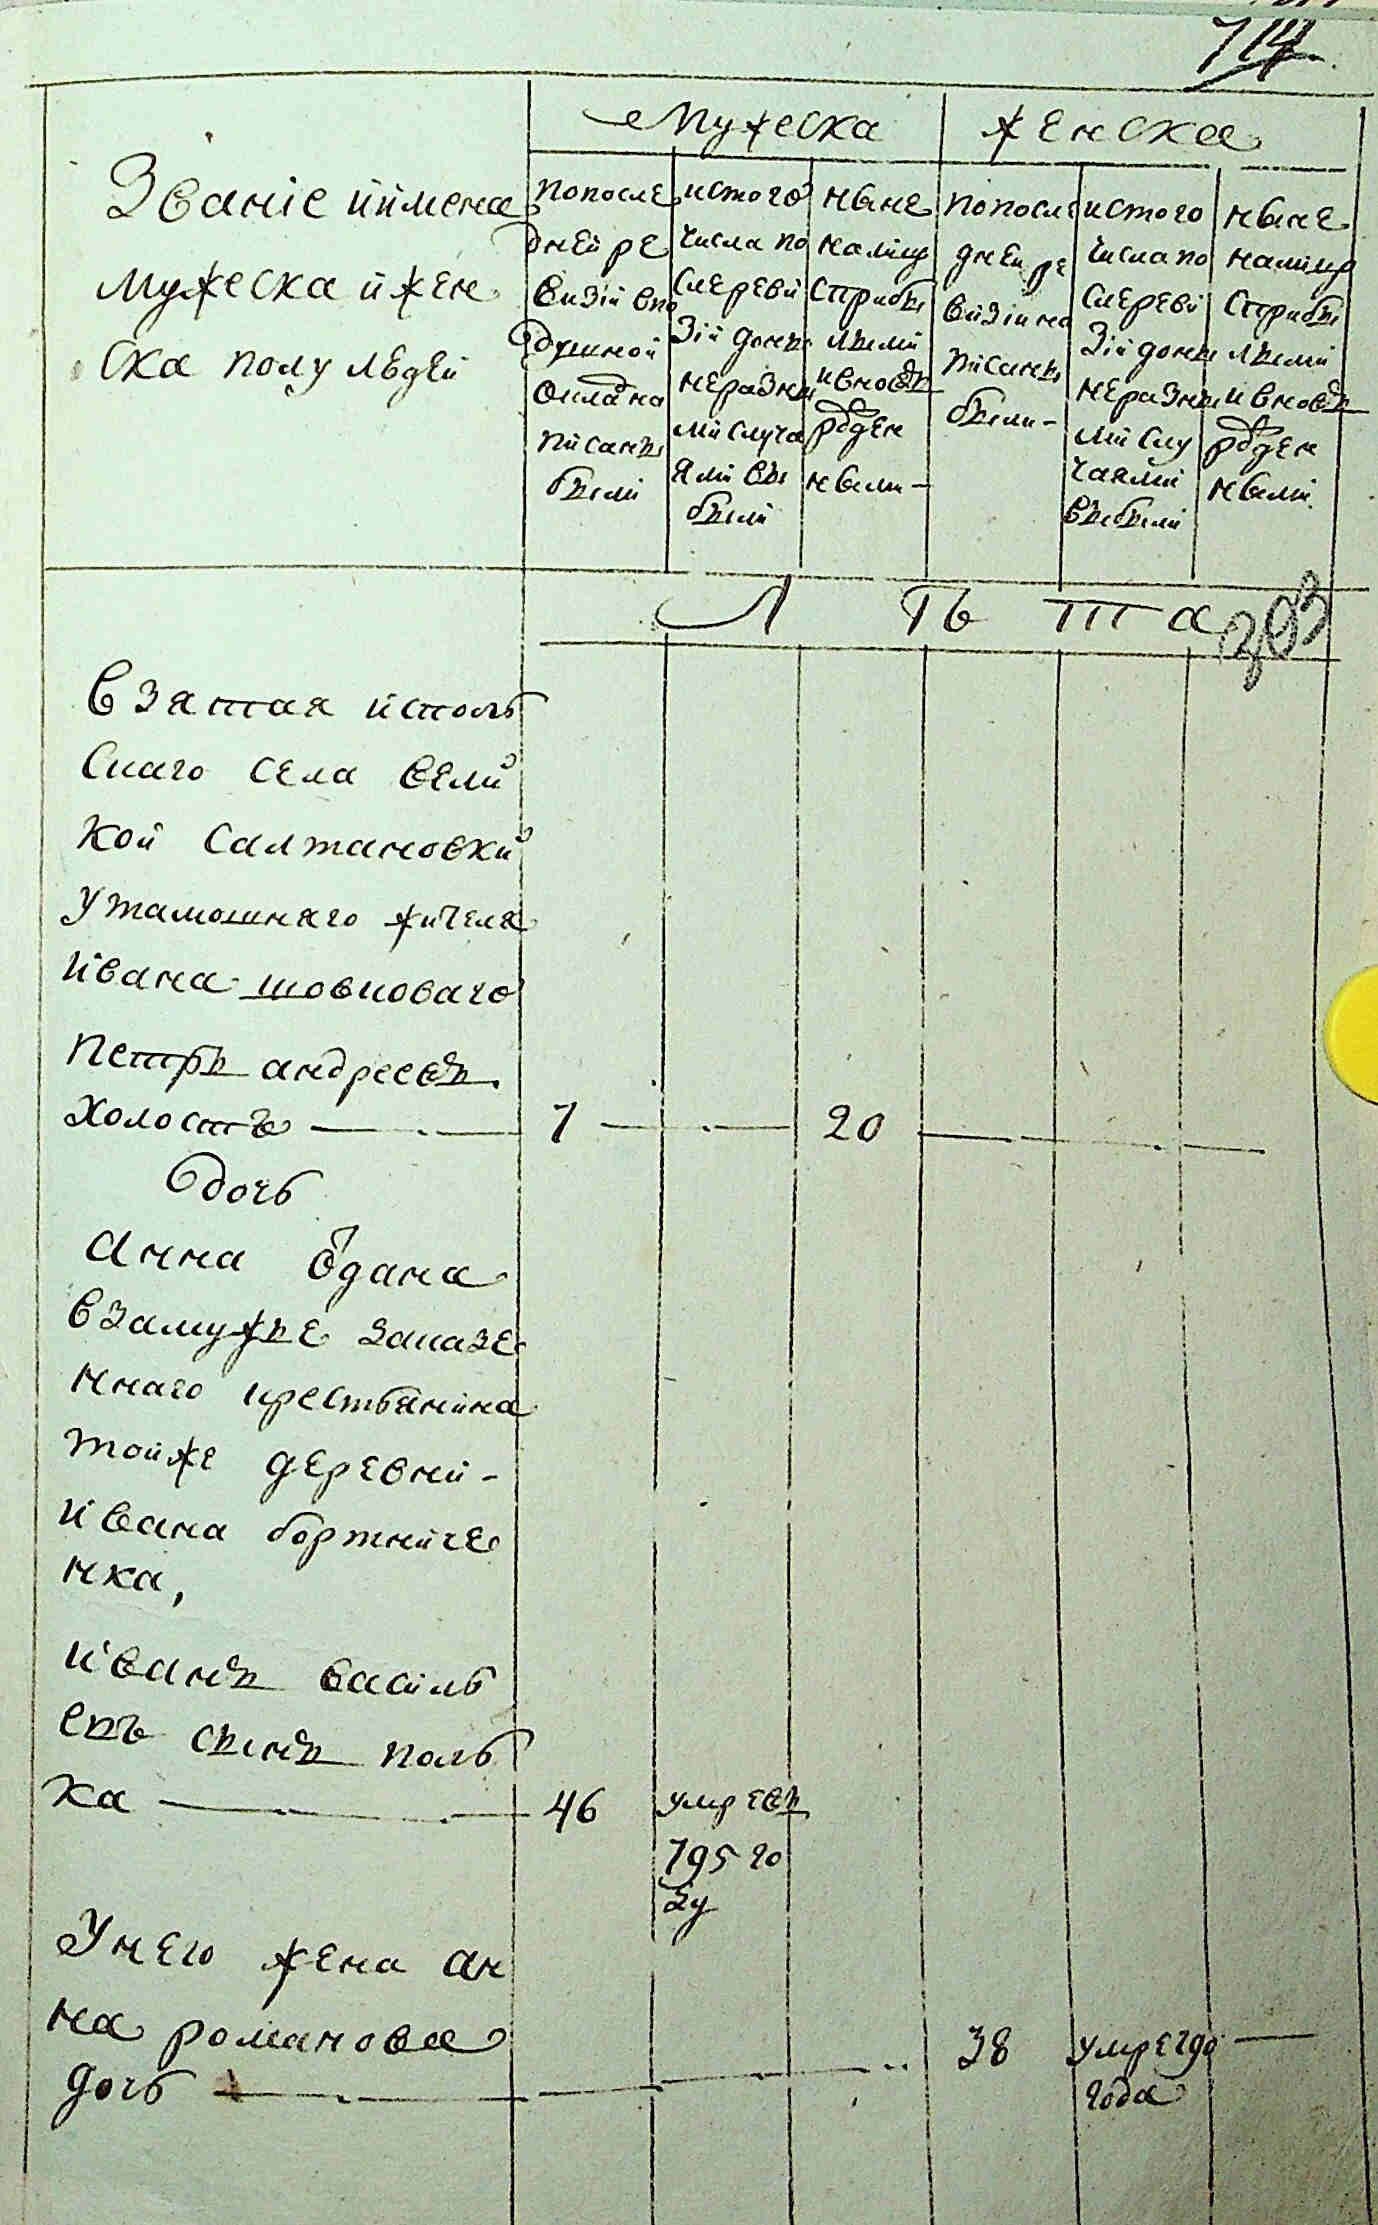 714
Мужеска
Женска
Званіе и имена
мужеска и жен
ска полу людей
по после
дней ре
визіи в по
душной
оклад на
писаны
были
ис того
числа по
сле реви
зіи доны
не разны
ми случа
ями вы
были
ныне
на лицо
с прибы
лыми
и вновь
рожден
ными
по посл
дней ре
визіи на
писаны
были
ис того
числа по
сле реви
зіи доны
не разны
ми слу
чаями
выбыли
ныне
на лицо
с прибы
лыми
и вновь
рожден
ными
Лѣта
203
взятая ис поль
скаго села вели
кой салтановки
у тамошняго жителя
ивана шовковаго
петръ андреевъ
холостъ 7 20
дочь
анна отдана
в замужъе за казе
ннаго крестьянина
той же деревни
ивана бортниче
нка,
иванъ василь
евъ сынъ поль
ка 46 умре въ
795 го
ду
У него жена ан
на романова
дочь 38 умре 790
года